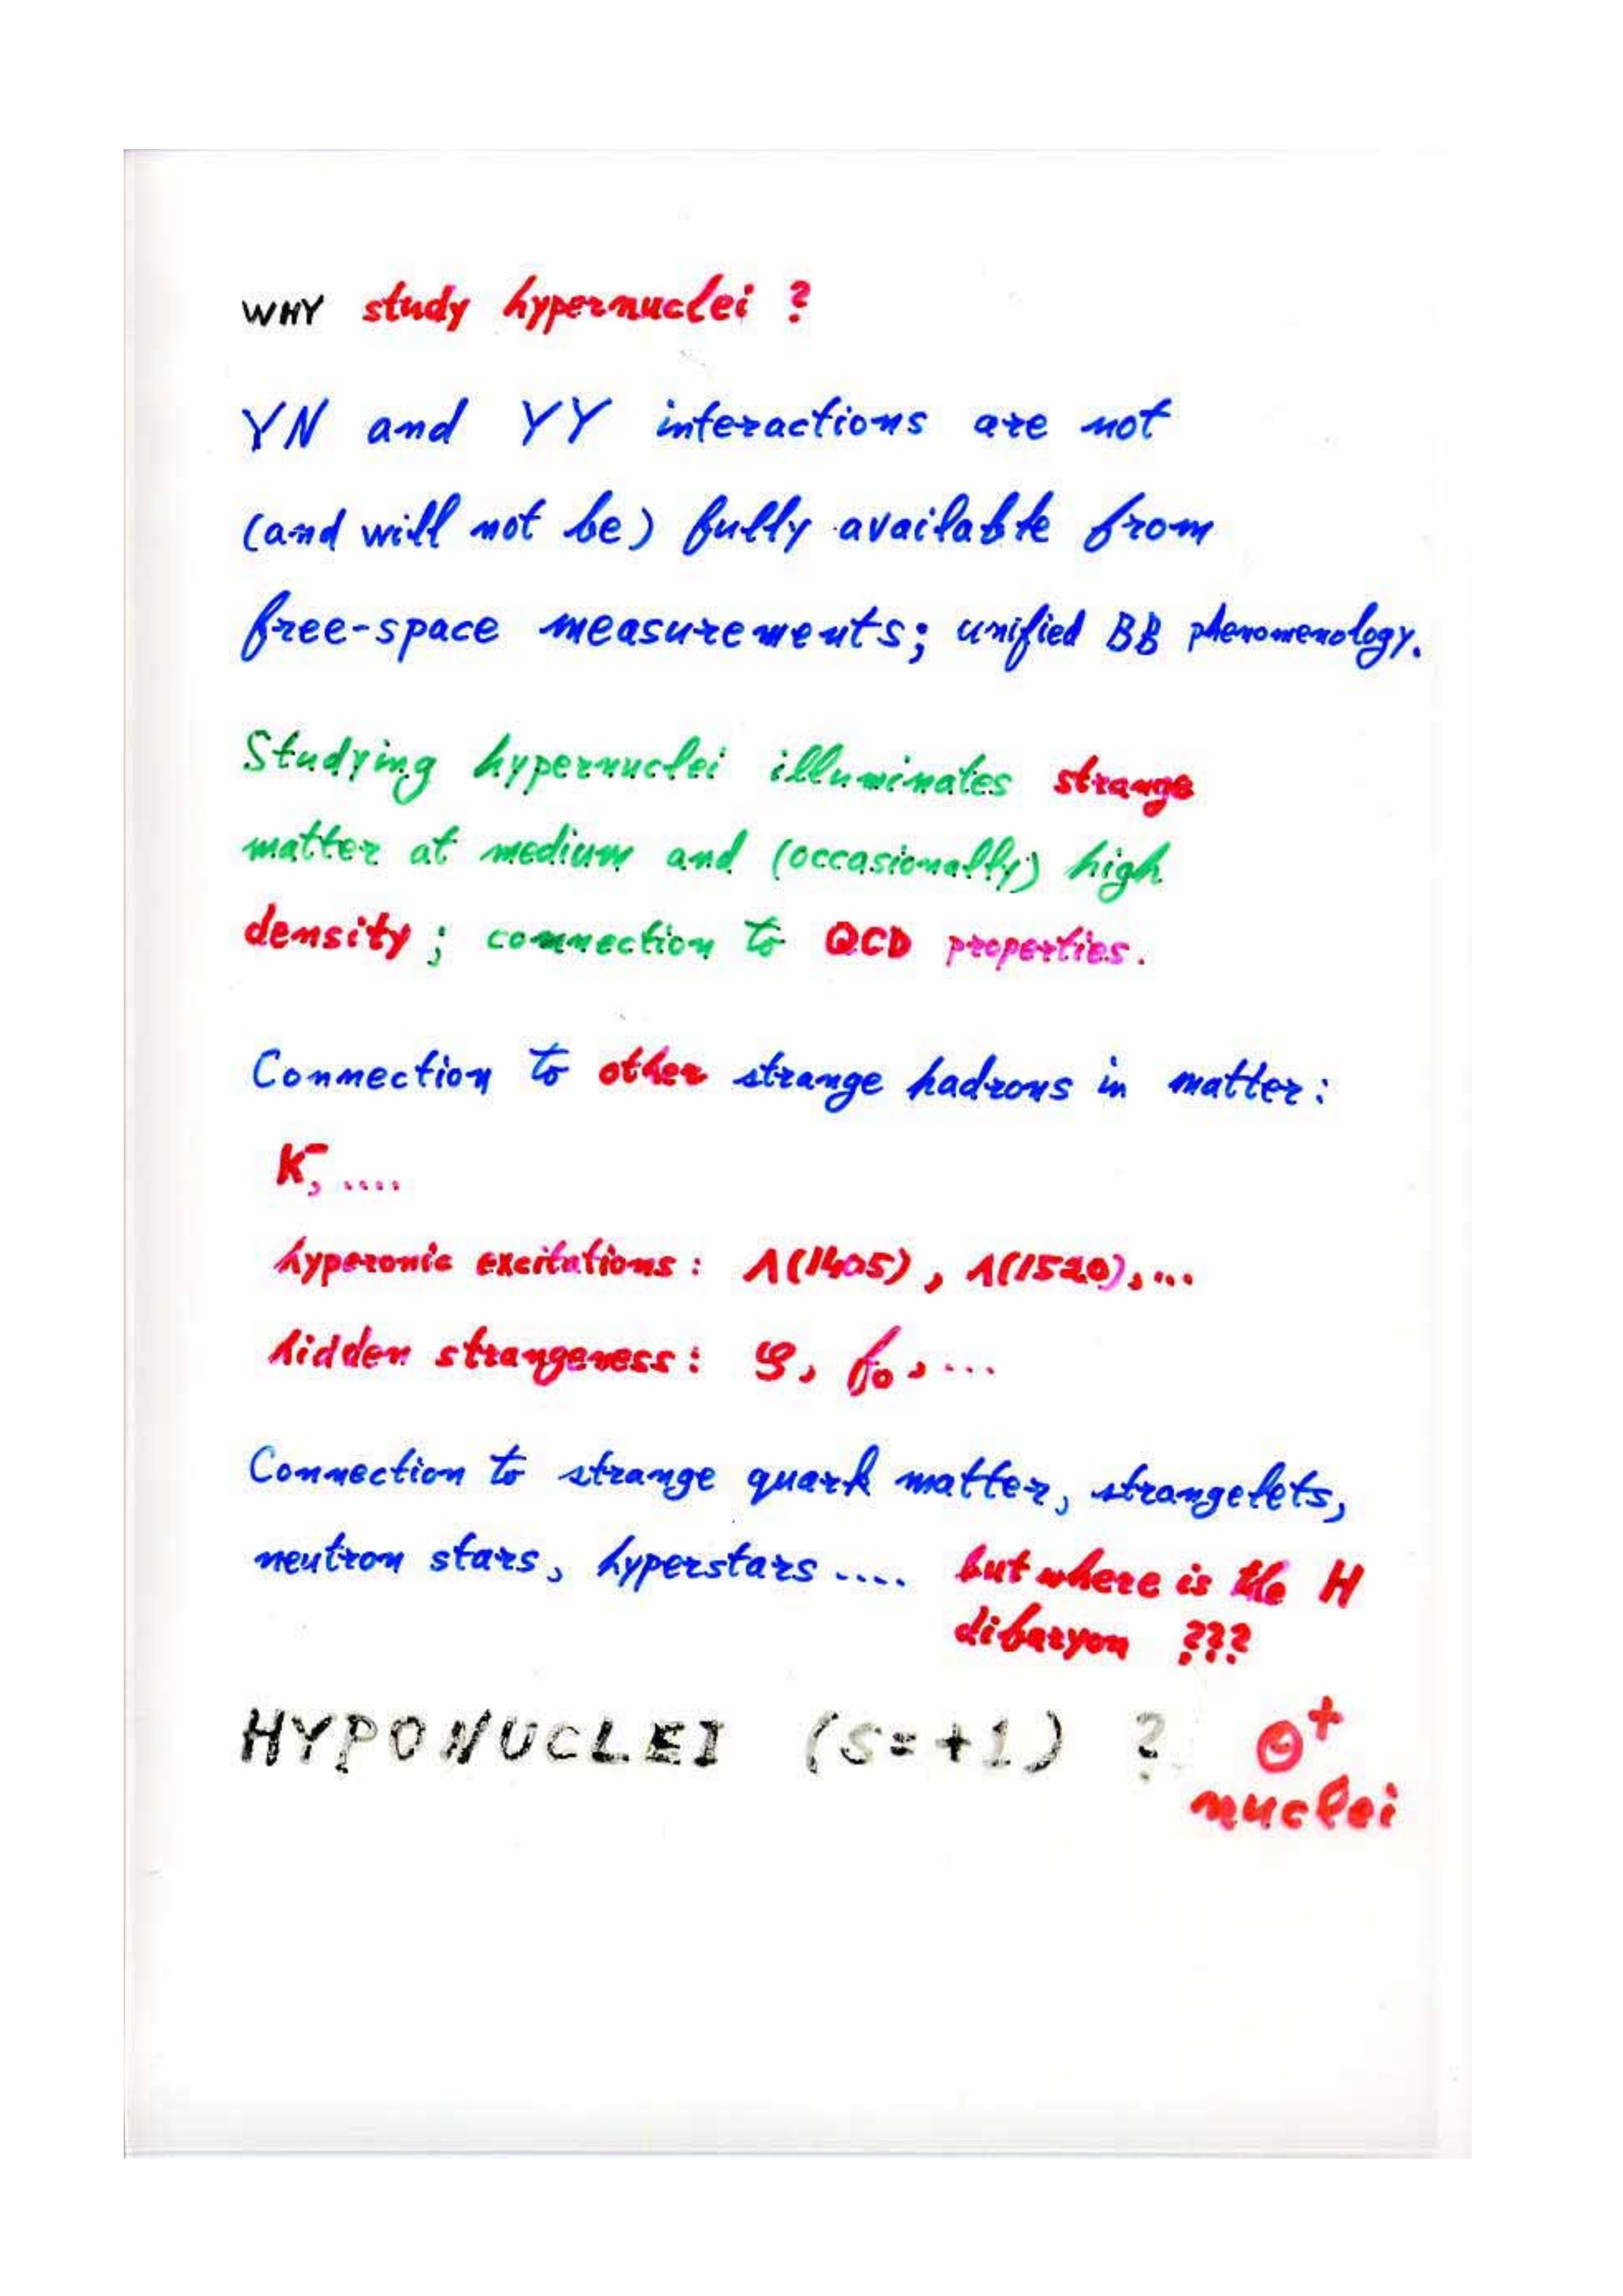 WHY study hypernuclei ?
YN and YY interactions are not
(and will not be) fully available from
free-space measurements; unified BB phenomenology.
Studying hypernuclei illuminates strange
matter at medium and (occasionally) high
density ; connection to QCD properties.
Connection to other strange hadrons in matter:
K⁻, ....
hyperonic excitations : Λ(1405) , Λ(1520), ...
hidden strangeness : φ, f₀ , ...
Connection to strange quark matter, strangelets,
neutron stars, hyperstars .... but where is the H
dibaryon ???
HYPONUCLEI (S=+1) ? Θ⁺
nuclei